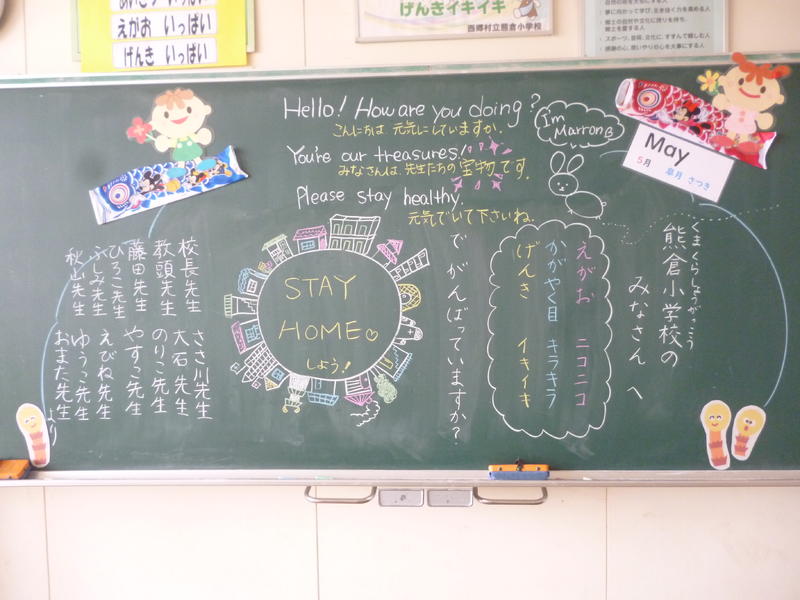 いっぱい
えがお いっぱい
げんき いっぱい
げんきイキイキ
西郷村立熊倉小学校
Hello! How are you doing?
こんにちは 元気にしていますか.
You're our treasures!
みなさんは、先生たちの宝物です.
Please stay healthy.
元気でいて下さいね.
I'm Marron
May
5月
皐月 さつき
くまくらしょうがっこう
熊倉小学校の
みなさん へ
えがお ニコニコ
かがやく目 キラキラ
げんき イキイキ
で がんばっていますか?
STAY
HOME
しよう!
校長先生 ささ川先生
教頭先生 大石先生
藤田先生 のりこ先生
ひろこ先生 やすこ先生
ふしみ先生 えびね先生
秋山先生 ゆうこ先生
おまた先生
より